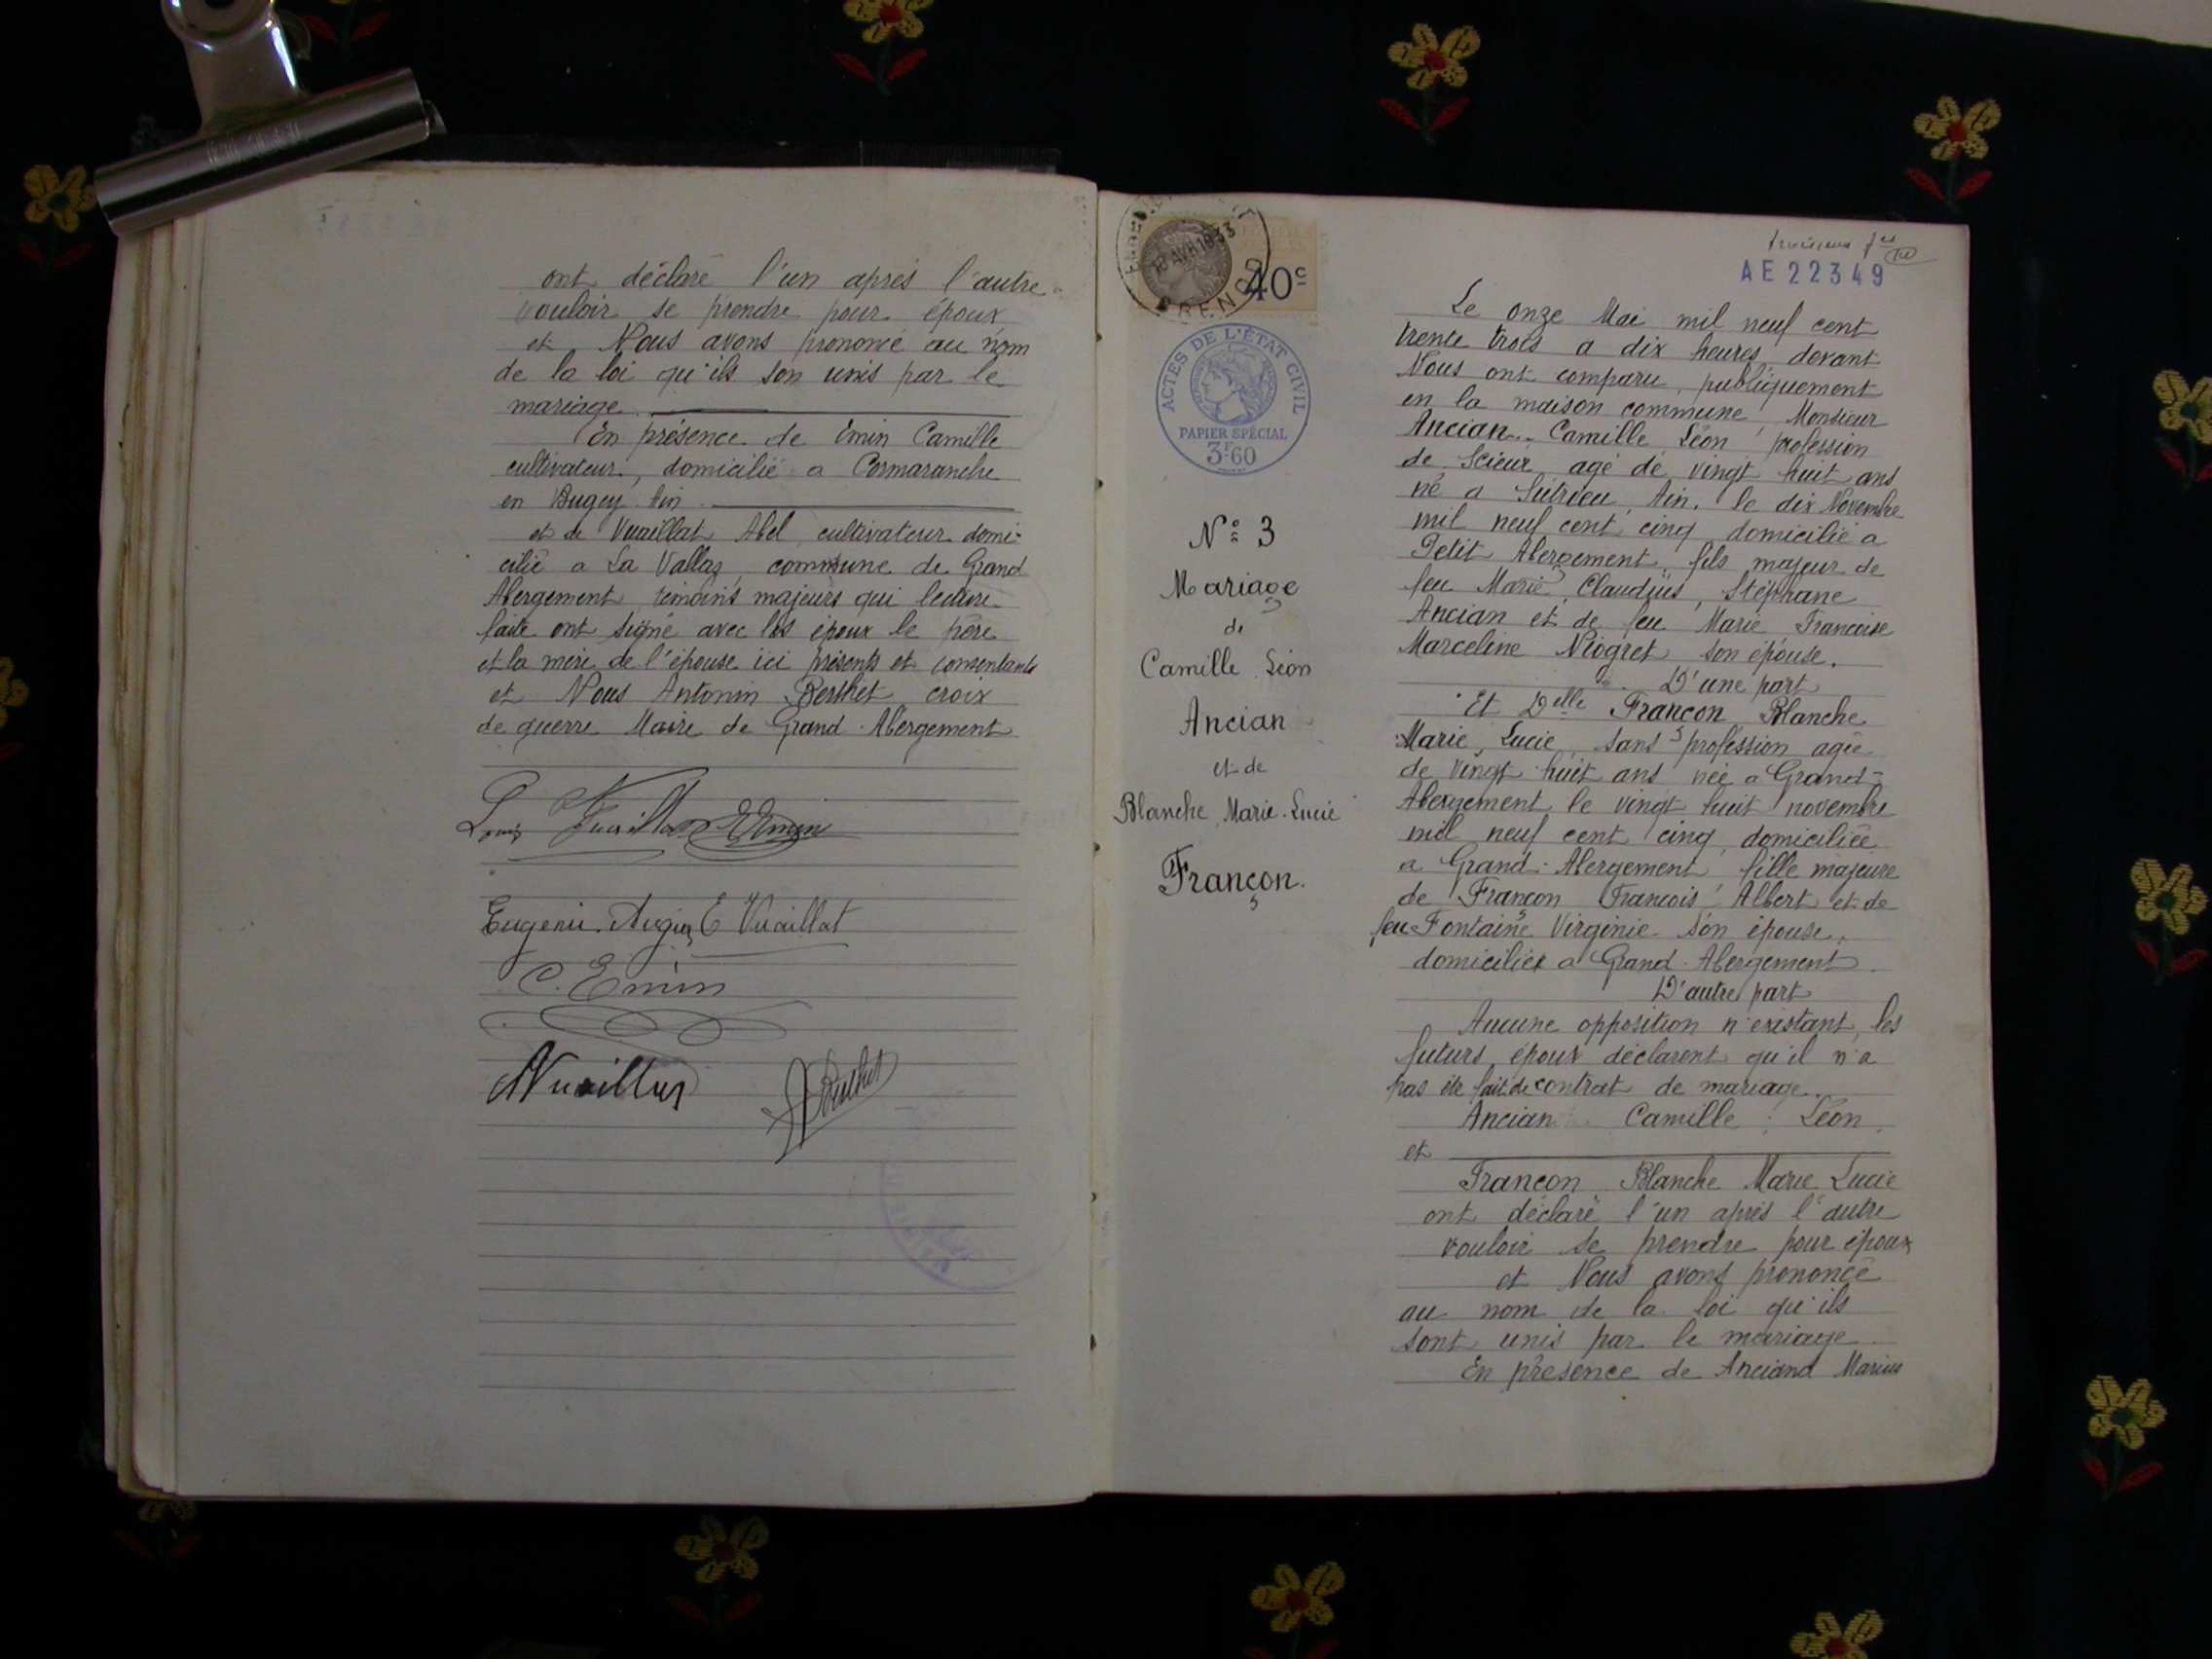 ont déclaré l'un après l'autre
vouloir se prendre pour époux
et Nous avons prononcé au nom
de la loi qu'ils son unis par le
mariage
En présence de Emin Camille
cultivateur, domicilié a Cormaranche
en Bugey Ain
et de Vuaillat Abel cultivateur domi-
cilié a La Vallaz, commune de Grand
Abergement témoins majeurs qui lecture
faite ont signé avec les époux le père
et la mère de l'épouse ici présents et consentants
et Nous Antonin Berthet croix
de guerre Maire de Grand-Abergement
Louis Vuaillat Emin
Eugenie E Vuaillat
C. Emin
AVuaillat
Berthet
18 AVR 1933
40c
ACTES DE L'ÉTAT CIVIL
PAPIER SPÉCIAL
3F60
No 3
Mariage
de
Camille Léon
Ancian
et de
Blanche Marie-Lucie
Françon.
AE 22349
Le onze Mai mil neuf cent
trente trois a dix heures devant
Nous ont comparu, publiquement
en la maison commune, Monsieur
Ancian Camille Léon, profession
de Scieur agé de vingt huit ans
né a Sutrieu, Ain, le dix Novembre
mil neuf cent cinq domicilié a
Petit Abergement, fils majeur de
feu Marie, Claudius, Stéphane
Ancian et de feu Marie Françoise
Marceline Niogret son épouse.
D'une part
Et Delle Françon Blanche
Marie, Lucie, sans profession agée
de vingt huit ans née a Grand-
Abergement le vingt huit novembre
mil neuf cent cinq, domiciliée
a Grand-Abergement fille majeure
de Françon François Albert et de
feu Fontaine Virginie son épouse,
domiciliés a Grand-Abergement
D'autre part
Aucune opposition n'existant, les
futurs époux déclarent qu'il n'a
pas été fait de contrat de mariage.
Ancian Camille Léon
et
Françon Blanche Marie Lucie
ont déclaré l'un après l'autre
vouloir se prendre pour époux
et Nous avons prononcé
au nom de la loi qu'ils
sont unis par le mariage
En présence de Anciand Marius